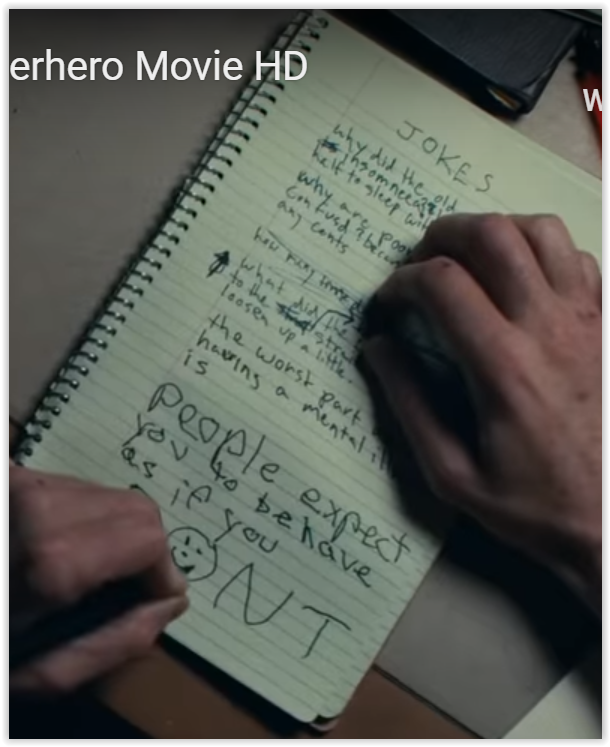 erhero Movie HD
W
JOKES
why did the old
insomneeac
helt to sleep with
why are poor
confusd? becau
any cents
how many times
what did the
to the straw
loosen up a little.
the worst part
having a mental ill
is
people expect
you to behave
as if you
DONT